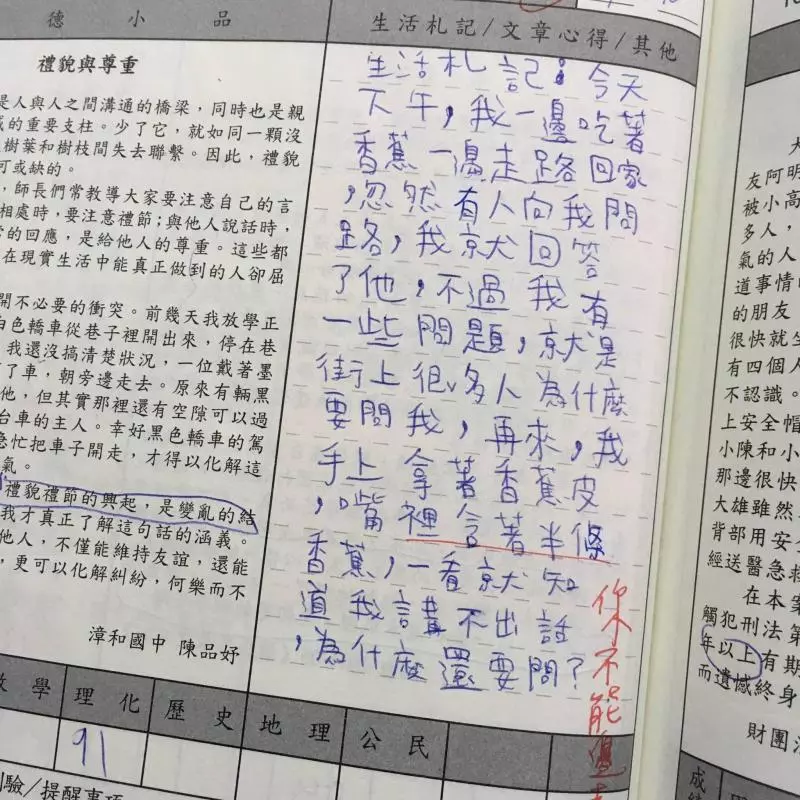 德小品
禮貌與尊重
是人與人之間溝通的橋梁，同時也是親
的重要支柱。少了它，就如同一顆沒
樹葉和樹枝間失去聯繫。因此，禮貌
可或缺的。
，師長們常教導大家要注意自己的言
相處時，要注意禮節；與他人說話時，
的回應，是給他人的尊重。這些都
在現實生活中能真正做到的人卻屈
開不必要的衝突。前幾天我放學正
白色轎車從巷子裡開出來，停在巷
我還沒搞清楚狀況，一位戴著墨
了車，朝旁邊走去。原來有輛黑
他，但其實那裡還有空隙可以過
台車的主人。幸好黑色轎車的駕
急忙把車子開走，才得以化解這
氣。
禮貌禮節的興起，是變亂的結
我才真正了解這句話的涵義。
他人，不僅能維持友誼，還能
，更可以化解糾紛，何樂而不
漳和國中 陳品妤
生活札記/文章心得/其他
生活札記：今天
下午，我一邊吃著
香蕉一邊走路回家
，忽然有人向我問
路，我就回答
了他，不過我有
一些問題，就是
街上很多人為什麼
要問我，再來，我
手上拿著香蕉皮
，嘴裡含著半條
香蕉，一看就知
道我講不出話
，為什麼還要問？
你不能邊
數學 理化 歷史 地理 公民
91
測驗/提醒事項
友阿明
被小高
多人，
氣的人
道事情
的朋友
很快就生
有四個人
不認識。
上安全帽
小陳和小
那邊很快
大雄雖然
背部用安全
經送醫急救
在本案
觸犯刑法第
年以上有期
而遺憾終身
財團法
成